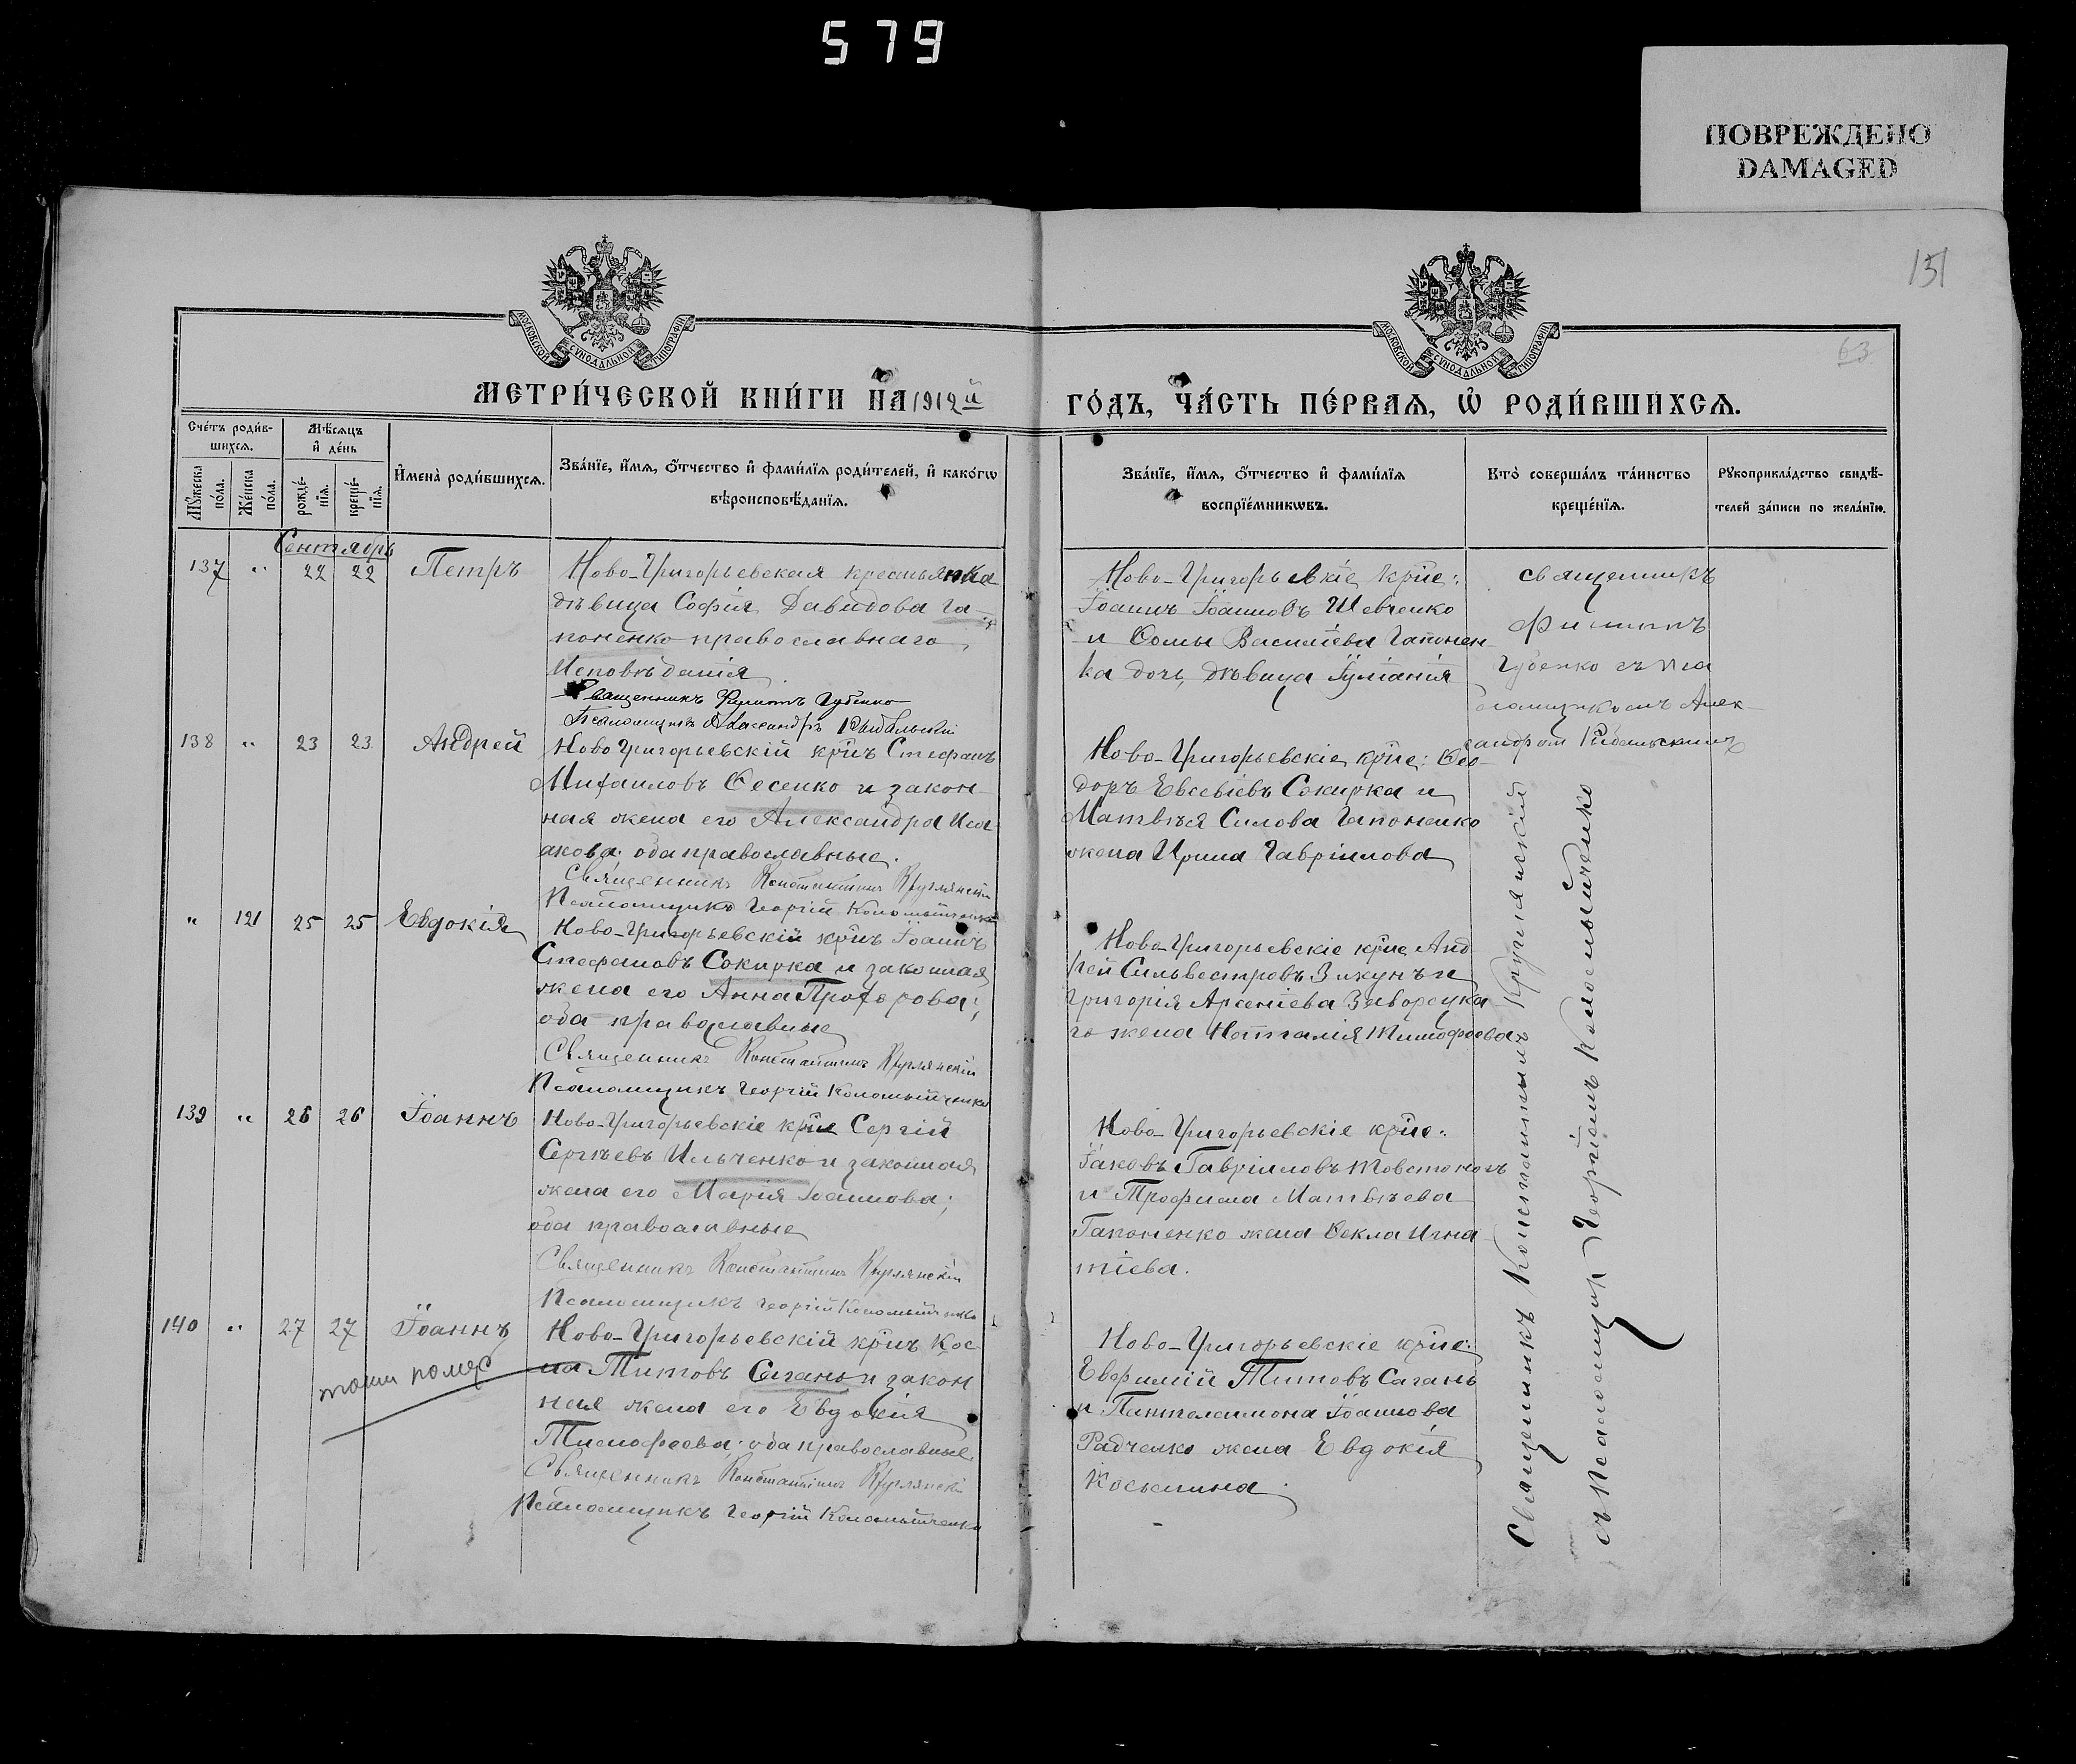 579
ПОВРЕЖДЕНО
DAMAGED
151
63
МОСКОВСКОЙ СѴНОДАЛЬНОЙ ТИПОГРАФІИ
МОСКОВСКОЙ СѴНОДАЛЬНОЙ ТИПОГРАФІИ
МЕТРИ́ЧЕСКОЙ КНИ́ГИ НА 1912й ГО́ДЪ, ЧА́СТЬ ПЕ́РВАѦ, Ѡ҆ РОДИ́ВШИХСѦ.
Сче́тъ роди́в-
шихсѧ.
Мꙋ́жеска по́ла.
Же́нска по́ла.
Мѣ́сѧцъ
и҆ де́нь
рожде́-
нїѧ.
креще́-
нїѧ.
И҆мена̀ роди́вшихсѧ.
Зва́нїе, и҆́мѧ, ѻ҆́тчество и҆ фами́лїѧ роди́телей, и҆ како́гѡ
вѣроисповѣ́данїѧ.
Зва́нїе, и҆́мѧ, ѻ҆́тчество и҆ фами́лїѧ
воспрїе́мникѡвъ.
Кто̀ соверша́лъ та́инство
креще́нїѧ.
Рꙋкоприкла́дство свидѣ́-
телей за́писи по жела́нїю.
Сентябрь
137 " 22 22 Петръ
Ново-Григорьевская крестьянка
дѣвица Софія Давидова Га-
поненко православнаго
исповѣданія
Священникъ Филиппъ Губенко
Псаломщикъ Александръ
Ново-Григорьевкіе кр͠не:
Іоаннъ Іоанновъ Шевченко
и Ѳомы Василіева Гапонен-
ка дочь, дѣвица Іуліанія
священникъ
Филиппъ
Губенко съ пса
ломщикомъ Алек-
сандром
138 " 23 23 Андрей
Ново Григорьевскій кр͠нъ Стефанъ
Михаиловъ Ѳесенко и закон-
ная жена его Александра Иса
акова; оба православные.
Священникъ Константинъ Круглянскій
Псаломщикъ Георгій Коломыйченко
Ново-Григорьевскіе кр͠не: Ѳео-
доръ Евсевіевъ Сокирка и
Матвѣя Силова Гапоненко
жена Ирина Гавріилова
" 121 25 25 Евдокія
Ново-Григорьевскій кр͠нъ Іоаннъ
Стефановъ Сокирка и законная
жена его Анна Прохорова;
оба православные
Священникъ Константинъ Круглянскій
Псаломщикъ Георгій Коломыйченко
Ново-Григорьевскіе кр͠не Анд
рей Сильвестровъ Зикунъ и
Григорія Арсеніева Заворецка
го жена Наталія Тимофеева
139 " 26 26 Іоаннъ
Ново-Григорьевскіе кр͠не Сергій
Сергѣевъ Ильченко и законная
жена его Марія Іоаннова;
оба православные
Священникъ Константинъ Круглянскій
Псаломщикъ Георгій Коломыйченко
Ново-Григорьевскіе кр͠не:
Іаковъ Гавріиловъ Товстоногъ
и Трофима Матвѣева
Гапоненко жена Ѳекла Игна-
тіева.
140 " 27 27 Іоаннъ
Ново-Григорьевскій кр͠нъ Кос-
ма Титовъ Сагань и закон
ная жена его Евдокія
Тимофеева; оба православные
Священникъ Константинъ Круглянскій
Псаломщикъ Георгій Коломыйченко
Ново-Григорьевскіе кр͠не:
Евфимій Титовъ Сагань
и Пантелеимона Іоаннова
Радченко жена Евдокія
Косьмина.
Священникъ Константинъ Круглянскій
съ Псаломщик Георгіемъ Коломыйченко